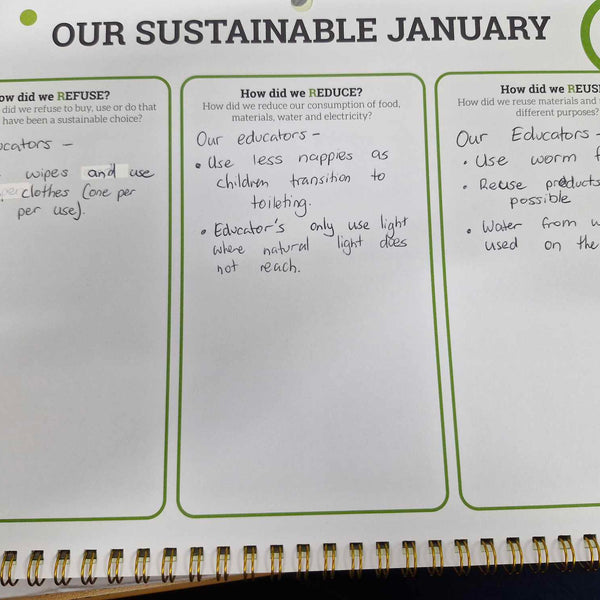 OUR SUSTAINABLE JANUARY
ow did we REFUSE?
did we refuse to buy, use or do that
have been a sustainable choice?
ucators -
wipes and use
clothes (one per
per use).
How did we REDUCE?
How did we reduce our consumption of food,
materials, water and electricity?
Our educators -
• Use less nappies as
children transition to
toileting.
• Educator's only use light
where natural light does
not reach.
How did we REUS
How did we reuse materials and
different purposes?
Our Educators -
• Use worm f
• Reuse products
possible
• Water from w
used on the